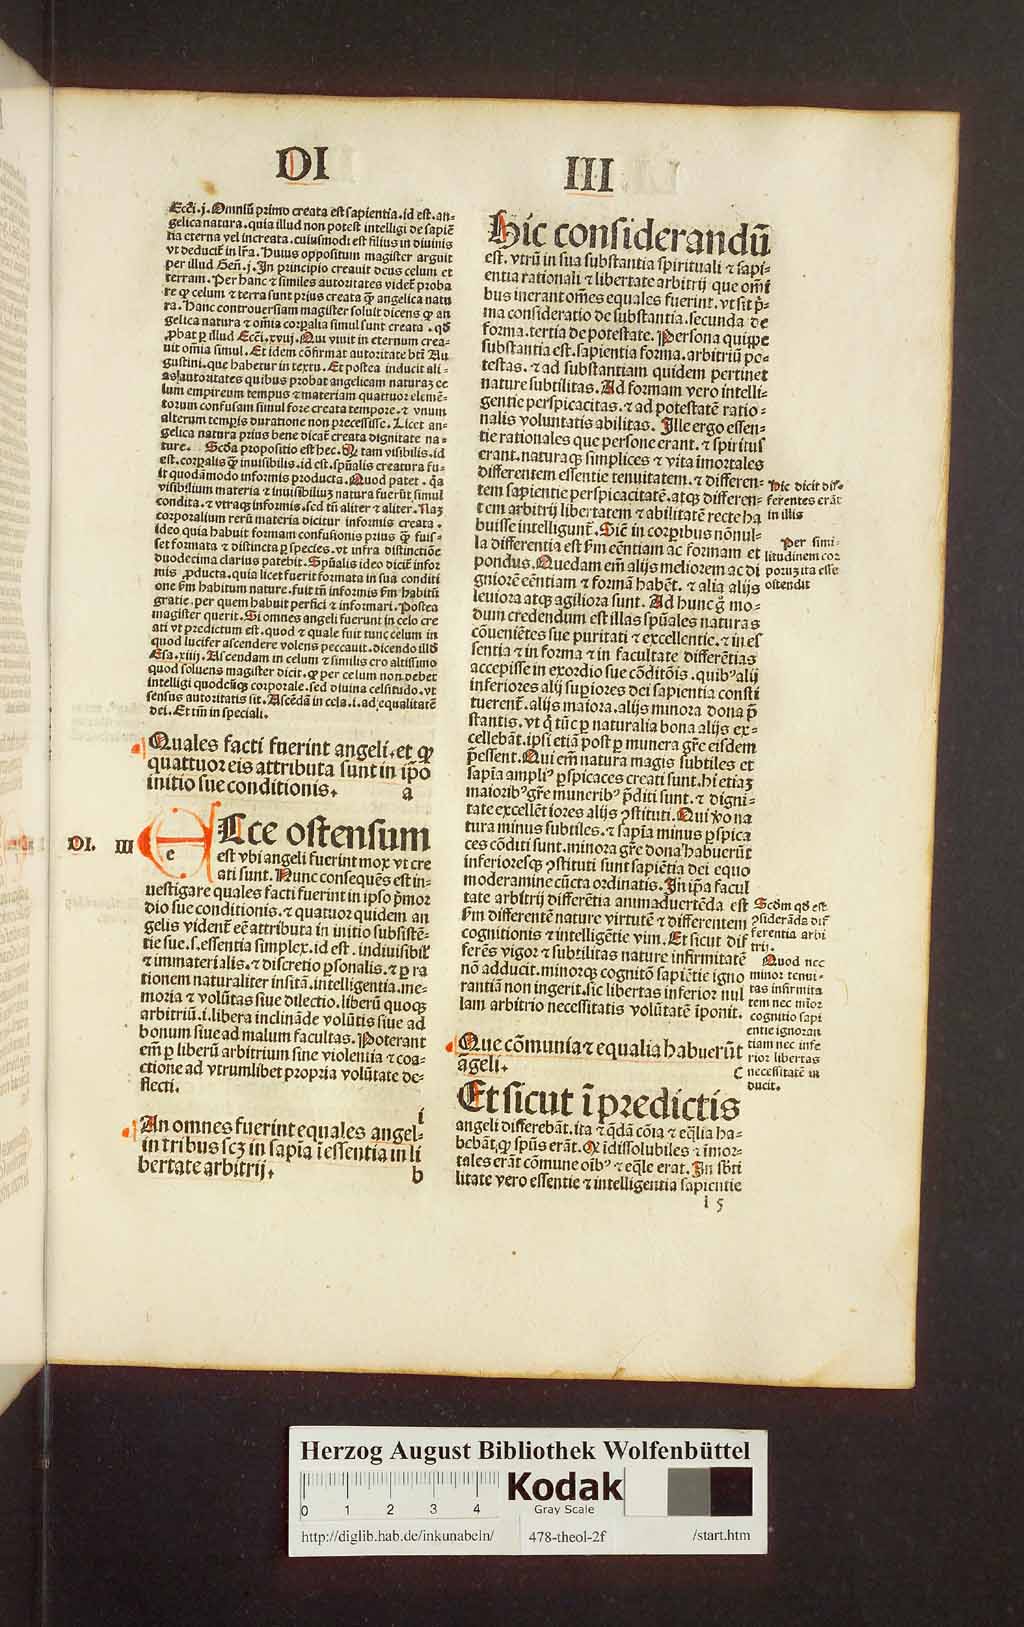 DI III
Ecci.j.Omniū primo creata est sapientia.id est.an-
gelica natura.quia illud non potest intelligi de sapiē
tia eterna vel increata.cuiusmodi est filius in diuinis
vt deducit̄ in lr̄a. Huius oppositum magister arguit
per illud Geñ.j.In principio creauit deus celum et
terram. Per hanc ⁊ similes autoritates videt̄ proba
re ꝙ celum ⁊ terra sunt prius creata q̄ꝫ angelica natu
ra. Hanc controuersiam magister soluit dicens ꝙ an
gelica natura ⁊ om̄ia corꝑalia simul sunt creata .qd̄
ꝓbat ꝑ illud Ecci.xvuj. Qui viuit in eternum crea-
uit om̄ia simul. Et idem cōfirmat autoritate btī Au
gustini.que habetur in textu. Et postea inducit ali-
as autoritates quibus probat angelicam naturaꝫ ce
lum empireum tempus ⁊ materiam quattuor elemē-
torum confusam simul fore creata tempore.⁊ vnum
alterum temꝑis duratione non precessisse. Licet an-
gelica natura prius bene dicat̄ creata dignitate na-
ture. Scd̄a propositio est hec. Q tam visibilis.id
est.corꝑalis q̄ꝫ inuisibilis.id est.spūalis creatura fu-
it quodāmodo informis producta. Quod patet .qa
visibilium materia ⁊ inuisibiliuꝫ natura fuerūt simul
condita.⁊ vtraqꝫ informis.sed tn̄ aliter ⁊ aliter. Naꝫ
corporalium rerū materia dicitur informis creata.
ideo quia habuit formam confusionis prius q̄ꝫ fuis-
set formata ⁊ distincta ꝑ species.vt infra distinctiōe
duodecima clarius patebit. Spūalis ideo dicit̄ infor
mis ꝓducta.quia licet fuerit formata in sua conditi
one ẜm habitum nature.fuit tn̄ informis ẜm habitū
gratie.per quem habuit perfici ⁊ informari. Postea
magister querit. Si omnes angeli fuerunt in celo cre
ati vt predictum est.quod ⁊ quale fuit tunc celum in
quod lucifer ascendere volens peccauit.dicendo illd̄
Esa.xiiij. Ascendam in celum ⁊ similis ero altissimo
quod soluens magister dicit.ꝙ per celum non debet
intelligi quodcūqꝫ corporale.sed diuina celsitudo.vt
sensus autoritatis sit. Ascēdā in celū.i.ad equalitatē
dei. Et tm̄ in speciali.
Quales facti fuerint angeli.et ꝙ
quattuor eis attributa sunt in ip̄o
initio sue conditionis. a
DI. III
e
Ecce ostensum
est vbi angeli fuerint mox vt cre
ati sunt. Nunc consequēs est in-
uestigare quales facti fuerint in ipso p̄mor
dio sue conditionis.⁊ quatuor quidem an
gelis vident̄ eē attributa in initio subsistē-
tie sue.s.essentia simplex.id est .indiuisibil̓
⁊ immaterialis.⁊ discretio ꝑsonalis.⁊ ꝑ ra
tionem naturaliter insitā.intelligentia.me-
moria ⁊ volūtas siue dilectio.liberū quoqꝫ
arbitriū.i.libera inclināde volūtis siue ad
bonum siue ad malum facultas. Poterant
em̄ ꝑ liberū arbitrium sine violentia ⁊ coa-
ctione ad vtrumlibet propria volūtate de-
flecti.
An omnes fuerint equales angeli
in tribus scꝫ in sapīa ī essentia in li
bertate arbitrij. b
Hic considerandū
est.vtrū in sua substantia spirituali ⁊ sapi-
entia rationali ⁊ libertate arbitrij que om̄i
bus inerant om̄es equales fuerint.vt sit p̄-
ma consideratio de substantia.secunda de
forma.tertia de potestate. Persona quippe
substantia est.sapientia forma.arbitriū po-
testas.⁊ ad substantiam quidem pertinet
nature subtilitas. Ad formam vero intelli-
gentie perspicacitas.⁊ ad potestatē ratio-
nalis voluntatis abilitas. Ille ergo essen-
tie rationales que persone erant.⁊ spiritus
erant.naturaqꝫ simplices ⁊ vita imortales
differentem essentie tenuitatem.⁊ differen-
tem sapientie perspicacitatē.atqꝫ differen-
tem arbitrij libertatem ⁊ abilitatē recte ha
buisse intelligunt̄. Sic̄ in corꝑibus nōnul-
la differentia est ẜm eēntiam ac formam et
pondus. Quedam em̄ alijs meliorem ac di
gniorē eēntiam ⁊ formā habēt. ⁊ alia alijs
leuiora atqꝫ agiliora sunt. Ad hunc ḡ mo-
dum credendum est illas spūales naturas
cōueniētes sue puritati ⁊ excellentie.⁊ in es
sentia ⁊ in forma ⁊ in facultate differētias
accepisse in exordio sue cōditōis.quibꝰ alij
inferiores alij suꝑiores dei sapientia consti
tuerent̄.alijs maiora.alijs minora dona p̄
stantis.vt q̇ tūc ꝑ naturalia bona alijs ex-
cellebāt.ipsi etiā post ꝑ munera gr̄e eisdem
p̄essent. Qui em̄ natura magis subtiles et
sapīa ampliꝰ ꝑspicaces creati sunt.hi etiaꝫ
maioribꝰ gr̄e muneribꝰ p̄diti sunt.⁊ digni-
tate excellētiores alijs ꝯstituti. Qui v̄o na
tura minus subtiles.⁊ sapīa minus ꝑspica
ces cōditi sunt.minora gr̄e dona habuerūt
inferioresqꝫ ꝯstituti sunt sapiētia dei equo
moderamine cūcta ordinatis. In ip̄a facul
tate arbitrij differētia animaduertēda est
ẜm differentē nature virtutē ⁊ differentem
cognitionis ⁊ intelligētie vim. Et sicut dif
ferēs vigor ⁊ subtilitas nature infirmitatē
nō adducit.minorqꝫ cognitō sapiētie igno
rantiā non ingerit.sic libertas inferior nul
lam arbitrio necessitatis volūtatē īponit.
Que cōmunia ⁊ equalia habuerūt
āgeli. c
Et sicut ī predictis
angeli differebāt.ita ⁊ q̄dā cōia ⁊ eq̄lia ha-
bebāt.ꝙ spūs erāt. Q īdissolubiles ⁊ īmor-
tales erāt cōmune oībꝰ ⁊ eq̄le erat. In sbti
litate vero essentie ⁊ intelligentia sapientie
i 5
Hic dicit dif-
ferentes erāt
in illis
Per simi-
litudinem cor
poruꝫ ita esse
ostendit
Scd̄m qd̄ est
ꝯsiderāda dif
ferentia arbi
trij.
Quod nec
minor tenui-
tas infirmita
tem nec mīor
cognitio sapi
entie ignoran
tiam nec infe
rior libertas
necessitatē in
ducit.
Herzog August Bibliothek Wolfenbüttel
0 1 2 3 4
Kodak
Gray Scale
http://diglib.hab.de/inkunabeln/ 478-theol-2f /start.htm